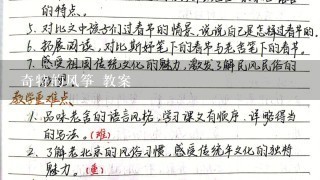 的特点。
5. 对比文中孩子们过春节的情景,说说自己是怎样过春节的。
6. 拓展阅读,对比斯妤笔下的春节与老舍笔下的春节。
7. 感受祖国传统文化的魅力,激发了解民风民俗的
奇特的风筝 教案
教学重难点
1. 品味老舍的语言风格,学习课文有顺序、详略得当
的写法。(难)
2. 了解老北京的风俗习惯,感受传统年文化的独特
魅力。(重)